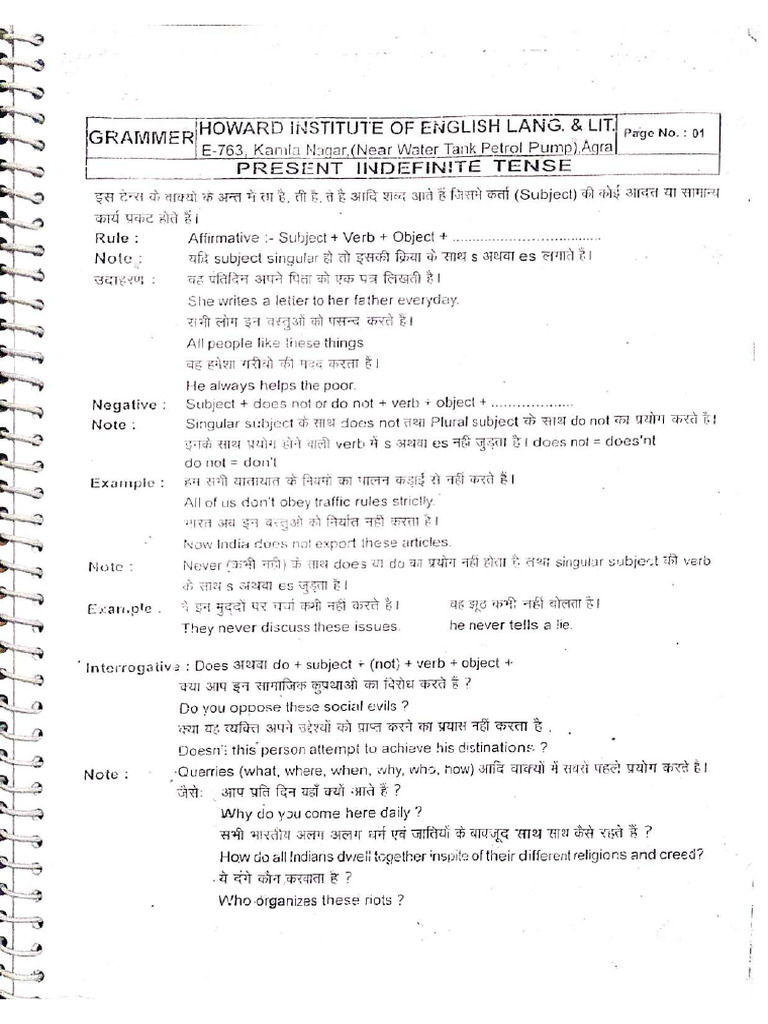 GRAMMER
HOWARD INSTITUTE OF ENGLISH LANG. & LIT.
E-763, Kamla Nagar,(Near Water Tank Petrol Pump),Agra
Page No. : 01
PRESENT INDEFINITE TENSE
इस टेन्स के वाक्यो के अन्त में ता है, ती है, ते है आदि शब्द आते हैं जिसमे कर्ता (Subject) की कोई आदत या सामान्य
कार्य प्रकट होते हैं।
Rule : Affirmative :- Subject + Verb + Object + ...................................
Note : यदि subject singular हो तो इसकी क्रिया के साथ s अथवा es लगाते है।
उदाहरण : वह प्रतिदिन अपने पिता को एक पत्र लिखती है।
She writes a letter to her father everyday.
सभी लोग इन वस्तुओं को पसन्द करते है।
All people like these things
वह हमेशा गरीबो की मदद करता है।
He always helps the poor.
Negative : Subject + does not or do not + verb + object + ...................
Note : Singular subject के साथ does not तथा Plural subject के साथ do not का प्रयोग करते है।
इनके साथ प्रयोग होने वाली verb में s अथवा es नही जुड़ता है। does not = does'nt
do not = don't
Example : हम सभी यातायात के नियमो का पालन कड़ाई से नहीं करते हैं।
All of us don't obey traffic rules strictly.
भारत अब इन वस्तुओ को निर्यात नही करता है।
Now India does not export these articles.
Note : Never (कभी नही) के साथ does या do का प्रयोग नही होता है तथा singular subject की verb
के साथ s अथवा es जुड़ता है।
Example : वे इन मुद्दो पर चर्चा कभी नहीं करते है। वह झूठ कभी नही बोलता है।
They never discuss these issues. he never tells a lie.
Interrogative : Does अथवा do + subject + (not) + verb + object +
क्या आप इन सामाजिक कुप्रथाओ का विरोध करते हैं ?
Do you oppose these social evils ?
क्या यह व्यक्ति अपने उद्देश्यों को प्राप्त करने का प्रयास नहीं करता है .
Doesn't this person attempt to achieve his distinations ?
Note : Querries (what, where, when, why, who, how) आदि वाक्यो में सबसे पहले प्रयोग करते है।
जैसेः आप प्रति दिन यहाँ क्यों आते है ?
Why do you come here daily ?
सभी भारतीय अलग अलग धर्म एवं जातियों के बावजूद साथ साथ कैसे रहते हैं ?
How do all Indians dwell together inspite of their different religions and creed?
ये दंगे कौन करवाता है ?
Who organizes these riots ?